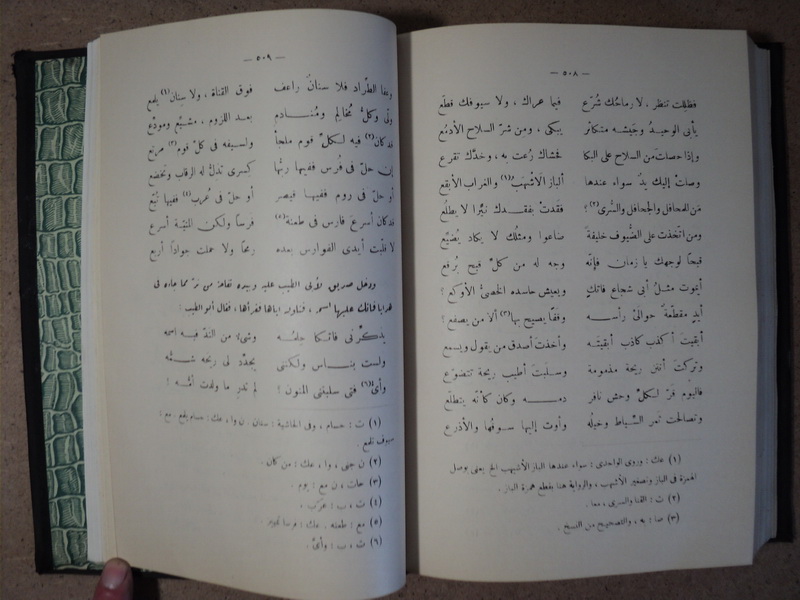 — ٥٠٨ —
فظللت تنظر، لا رماحك شرّع فيما عراك، ولا سيوفك قطّع
يأبى الوحيد وجيشه متكاثر يبكى، ومن شرّ السلاح الأدمع
وإذا حصلت من السلاح على البكا فحشاك رعت به، وخدّك تقرع
وصلت إليك يد سواء عندها ألباز الأشيهب(١) والغراب الأبقع
من للمحافل والجحافل والسّرى(٢)؟ فقدت بفقدك نيّرا لا يطلع
ومن اتخذت على الضّيوف خليفة ضاعوا ومثلك لا يكاد يضيّع
قبحا لوجهك يا زمان فإنّه وجه له من كلّ قبح برقع
أيموت مثل أبى شجاع فاتك ويعيش حاسده الخصىّ الأوكع؟
أيد مقطّعة حوالى رأسه وقفا يصيح بها(٣) ألا من يصفع؟
أبقيت أكذب كاذب أبقيته وأخذت أصدق من يقول ويسمع
وتركت أنتن ريحة مذمومة وسلبت أطيب ريحة تتضوّع
فاليوم قرّ لكلّ وحش نافر دمه وكان كأنّه يتطلّع
وتصالحت ثمر السّياط وخيله وأوت إليها سوقها والأذرع
(١) عك: وروى الواحدى: سواء عندها الباز الأشيهب الخ يعنى بوصل
الهمزة فى الباز وتصغير الأشهب، والرواية هنا بقطع همزة الباز.
(٢) ت: القنا والسرى، معا.
(٣) صا: به، والتصحيح من النسخ.
— ٥٠٩ —
وعفا الطّراد فلا سنان راعف فوق القناة، ولا سنان(١) يلمع
ولّى وكلّ مخالم ومنادم بعد اللزوم، مشيّع ومودّع
قد كان(٢) فيه لكلّ قوم ملجأ ولسيفه فى كلّ قوم(٣) مرتع
إن حلّ فى فرس ففيها ربّها كسرى تذلّ له الرقاب وتخضع
أو حلّ فى روم ففيها قيصر أو حلّ فى عرب(٤) ففيها تبّع
قد كان أسرع فارس فى طعنة(٥) فرسا ولكن المنيّة أسرع
لا قلّبت أيدى الفوارس بعده رمحا ولا حملت جوادا أربع
ودخل صديق لأبى الطيب عليه وبيده تفاحة من ندّ مما جاءه فى
هدايا فاتك عليها اسمه، فناوله إياها فقرأها، فقال أبو الطيب:
يذكّرنى فاتكا حلمه وشىء من الندّ فيه اسمه
ولست بناس ولكنّنى يجدّد لى ريحه شمّه
وأىّ(٦) فتى سلبتنى المنون! لم تدر ما ولدت أمّه!
(١) ت: حسام، وفى الحاشية: سنان. ن وا، عك: حسام يلمع. مع:
سيوف تلمع.
(٢) ن جنى، وا، عك: من كان.
(٣) حات، ن مع: يوم.
(٤) ت، ب: عرب.
(٥) مع: طعنه. عك:
(٦) ت، ب: وأىّ.